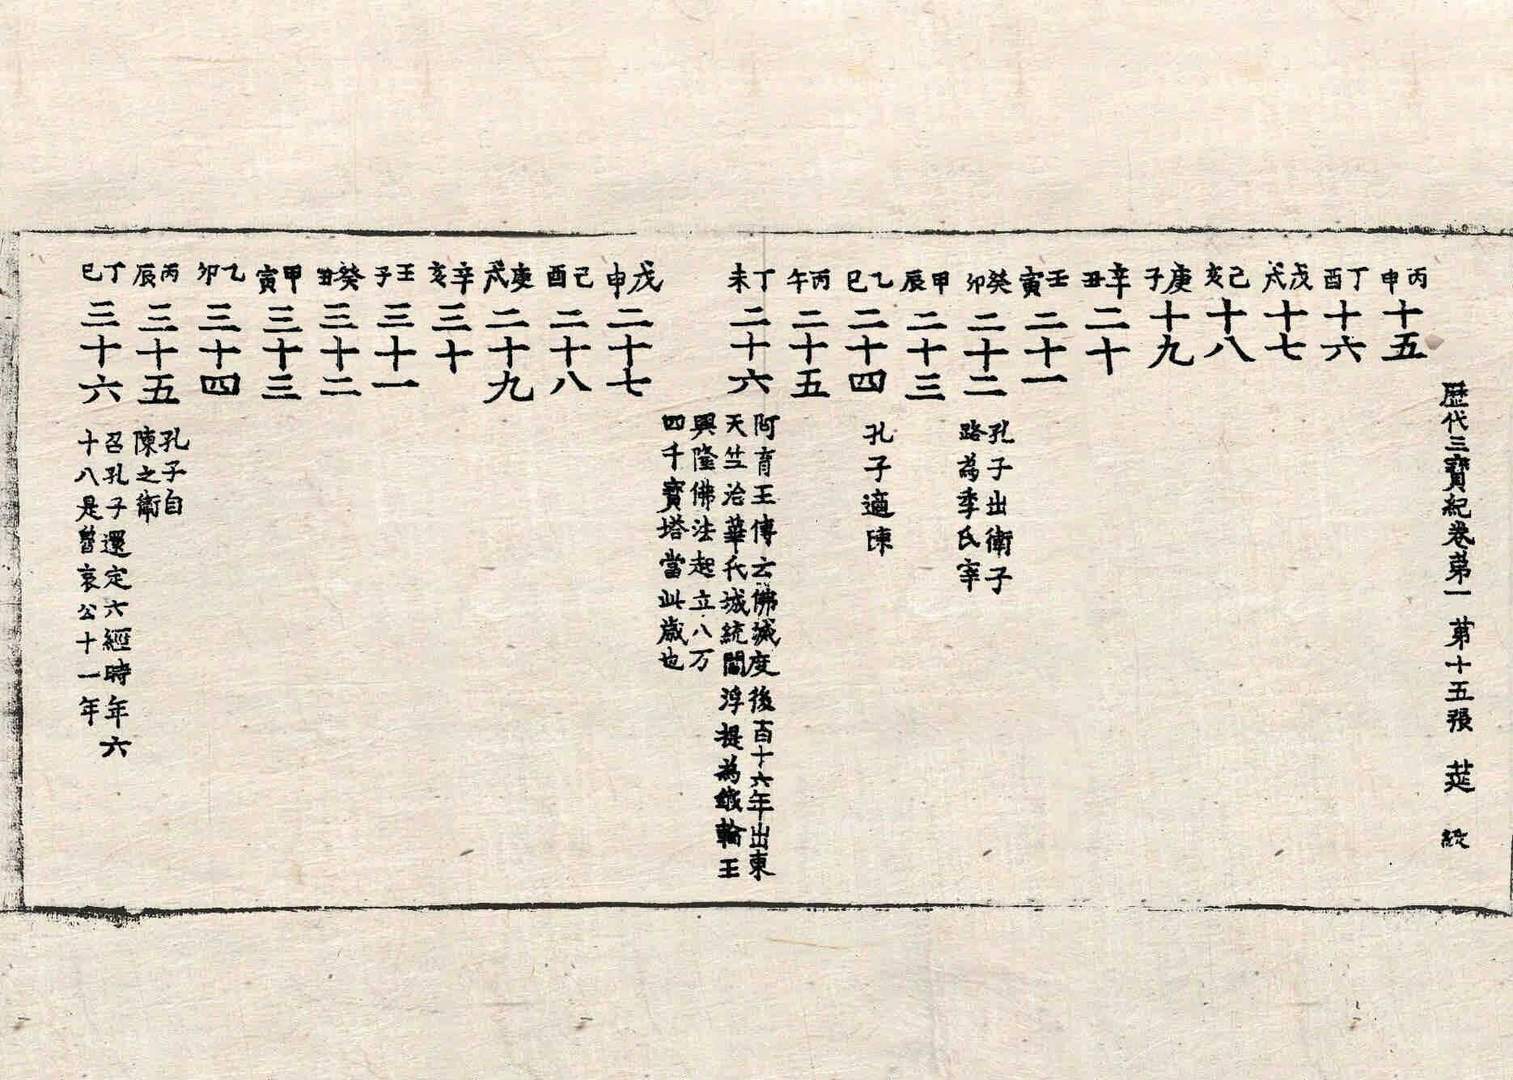 歷代三寶紀卷苐一 苐十五張 莚
丙申十五
丁酉十六
戊戌十七
己亥十八
庚子十九
辛丑二十
壬寅二十一
癸卯二十二
孔子出衛子
路為季氏宰
甲辰二十三
乙巳二十四 孔子適陳
丙午二十五
丁未二十六
阿育王傳云佛滅度後百十六年出東
天竺治華氏城統閻浮提為鐵輪王
興隆佛法起立八万
四千寶塔當此歲也
戊申二十七
己酉二十八
庚戌二十九
辛亥三十
壬子三十一
癸丑三十二
甲寅三十三
乙卯三十四
丙辰三十五
孔子自
陳之衛
丁巳三十六
召孔子還定六經時年六
十八是魯哀公十一年